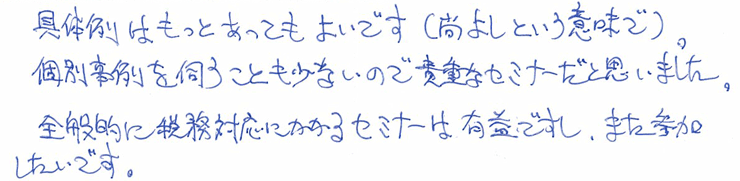 具体例はもっとあってもよいです（尚よしという意味で）。
個別事例を伺うことも少ないので貴重なセミナーだと思いました。
全般的に税務対応にかかるセミナーは有益ですし、また参加
したいです。